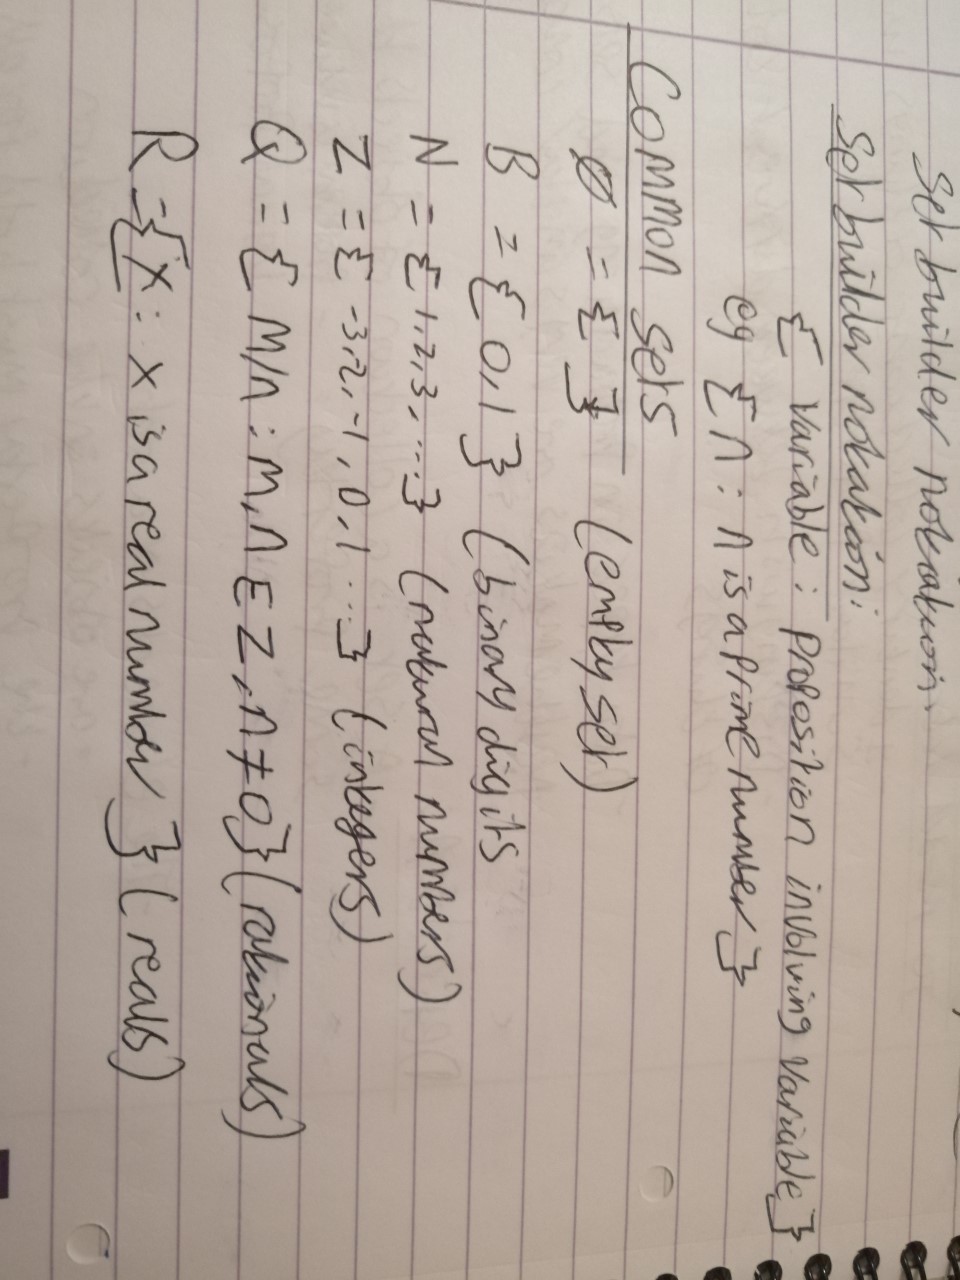 Set builder notation.
Set builder notation:
{ variable : proposition involving variable }
eg { n : n is a prime number }
Common sets
Ø = { } (empty set)
B = { 0, 1 } (binary digits
N = { 1, 2, 3, ... } (natural numbers)
Z = { -3, -2, -1, 0, 1 ... } (integers)
Q = { m/n : m, n ∈ Z, n ≠ 0 } (rationals)
R = { x : x is a real number } (reals)